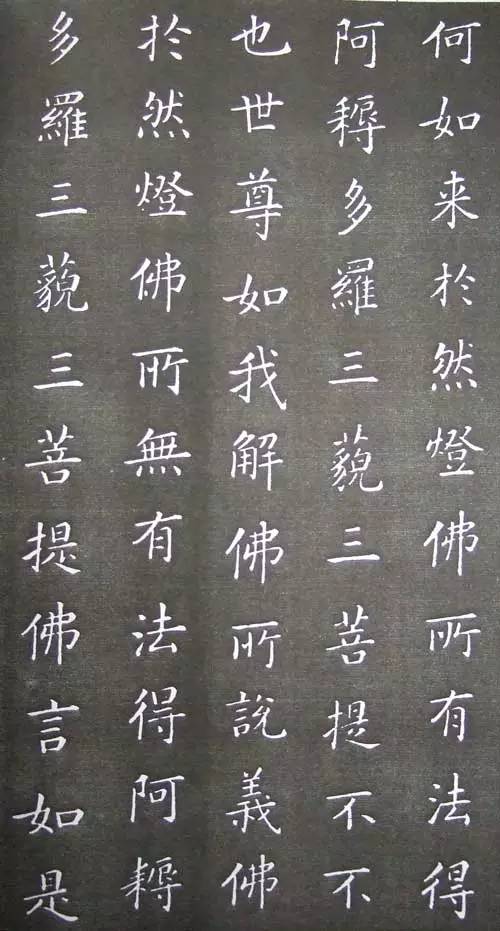 何如来於然燈佛所有法得
阿耨多羅三藐三菩提不不
也世尊如我解佛所說義佛
於然燈佛所無有法得阿耨
多羅三藐三菩提佛言如是